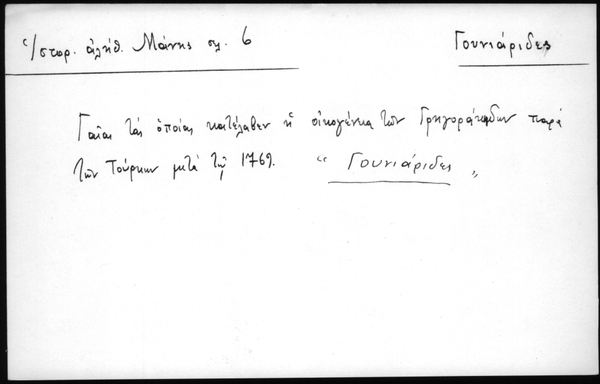 Ἱστορ. ἀλήθ. Μάνης σλ. 6
Γουνιάριδες
Γαῖαι τὰς ὁποίας κατέλαβεν ἡ οἰκογένεια τῶν Γρηγοράκηδων παρὰ
τῶν Τούρκων μετὰ τῷ 1769. “Γουνιάριδες„